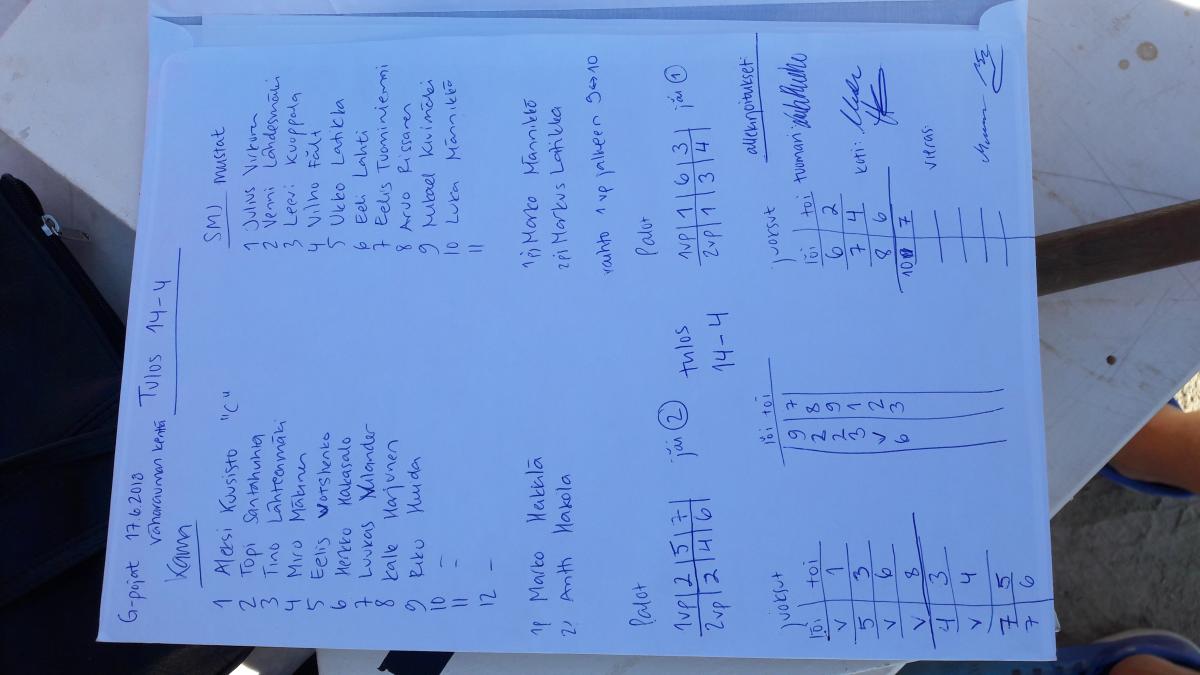 G-pojat 17.6.2018
Väharauman kenttä Tulos 14-4
Kama
1 Aleksi Kuusisto "C"
2 Topi Santahuhta
3 Tino Lähteenmäki
4 Miro Mäkinen
5 Eelis Worshenko
6 Herkko Hakasalo
7 Luukas Nulander
8 Kalle Harjunen
9 Riku Huida
10 -
11 -
12 -
1p Marko Heikkilä
2p Antti Hakola
SMJ mustat
1 Julius Virtanen
2 Venni Lähdesmäki
3 Leevi Kuoppala
4 Vilho Fält
5 Ukko Latikka
6 Eeli Lahti
7 Eelis Tuominiemi
8 Arvo Rissanen
9 Mikael Kiimäki
10 Luka Männikkö
11
1p Marko Männikkö
2p Markus Latikka
vaihto 1 vp jälkeen 9↔10
Palot
1vp 2 5 7 jäi 2
2vp 2 4 6
tulos
14-4
Palot
1vp 1 6 3 jäi 1
2vp 1 3 4
juoksut
löi toi
v 1
5 3
v 6
v 8
4 3
v 4
7 5
7 6
löi toi
9 7
2 8
2 9
3 1
v 2
6 3
juoksut
löi toi
6 2
7 4
8 6
10 7
allekirjoitukset
tuomari:
koti:
vieras: